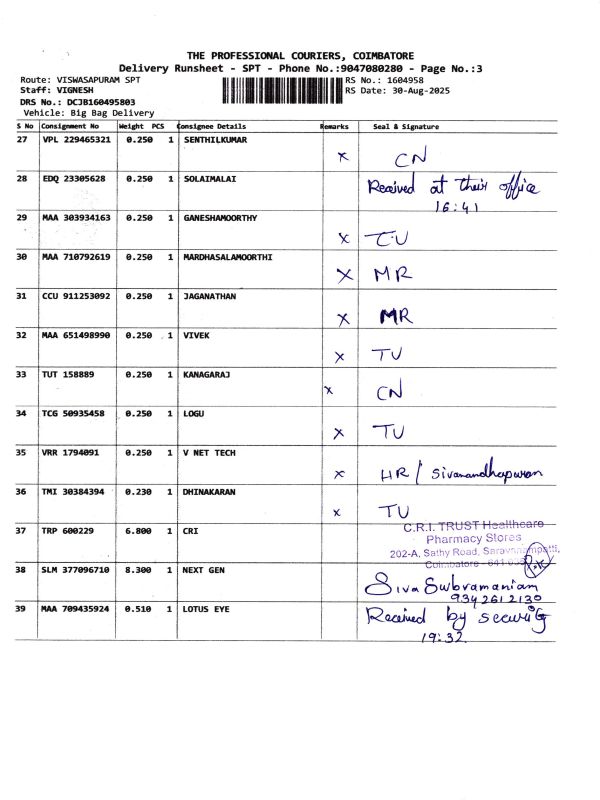 THE PROFESSIONAL COURIERS, COIMBATORE
Delivery Runsheet - SPT - Phone No.:9047080280 - Page No.:3
Route: VISWASAPURAM SPT RS No.: 1604958
Staff: VIGNESH RS Date: 30-Aug-2025
DRS No.: DCJB160495803
Vehicle: Big Bag Delivery
S No Consignment No Weight PCS Consignee Details Remarks Seal & Signature
27 VPL 229465321 0.250 1 SENTHILKUMAR
x CN
28 EDQ 23305628 0.250 1 SOLAIMALAI Received at their office
16:41
29 MAA 303934163 0.250 1 GANESHAMOORTHY
x TU
30 MAA 710792619 0.250 1 MARDHASALAMOORTHI
x MR
31 CCU 911253092 0.250 1 JAGANATHAN
x MR
32 MAA 651498990 0.250 1 VIVEK
x TU
33 TUT 158889 0.250 1 KANAGARAJ
x CN
34 TCG 50935458 0.250 1 LOGU
x TU
35 VRR 1794091 0.250 1 V NET TECH
x HR / Sivanandhapuram
36 TMI 30384394 0.230 1 DHINAKARAN
x TU
37 TRP 600229 6.800 1 CRI C.R.I. TRUST Healthcare
Pharmacy Stores
202-A, Sathy Road, Saravanampatti,
Coimbatore - 641
38 SLM 377096710 8.300 1 NEXT GEN
Siva Subramaniam
9342612130
39 MAA 709435924 0.510 1 LOTUS EYE Received by security
19:32